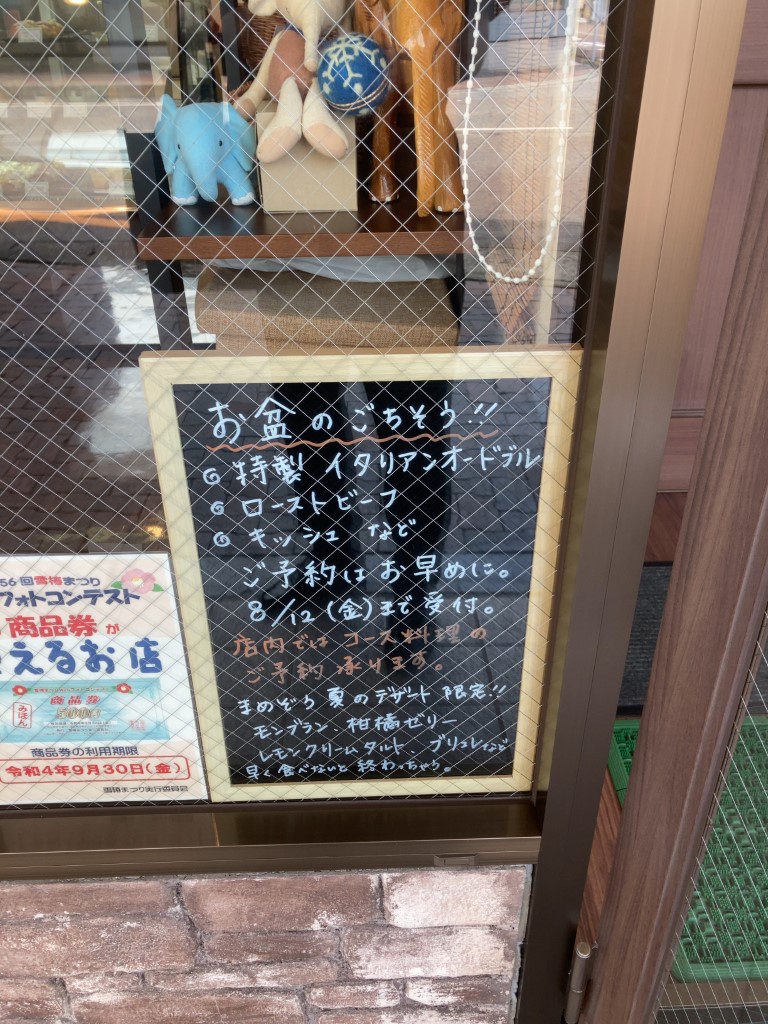 お盆のごちそう!!
特製 イタリアンオードブル
ローストビーフ
キッシュ など
ご予約はお早めに。
8/12(金)まで受付。
店内では コース料理の
ご予約 承ります。
まめぞう 夏のデザート 限定!!
モンブラン、柑橘ゼリー
レモンクリームタルト、ブリュレなど
早く食べないと 終わっちゃう。
56回雪椿まつり
フォトコンテスト
商品券が
えるお店
商品券
みほん
商品券の利用期限
令和4年9月30日(金)
雪椿まつり実行委員会